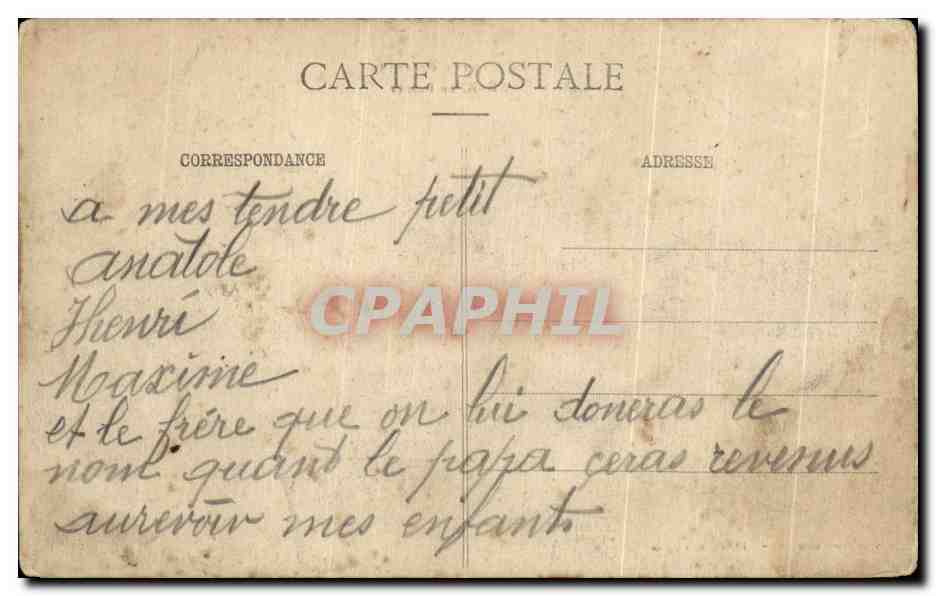 CARTE POSTALE
CORRESPONDANCE
ADRESSE
a mes tendre petit
anatole
Henri
Maxime
et le frére que on lui doneras le
nom quant le papa çeras revenus
aurevoir mes enfants
CPAPHIL